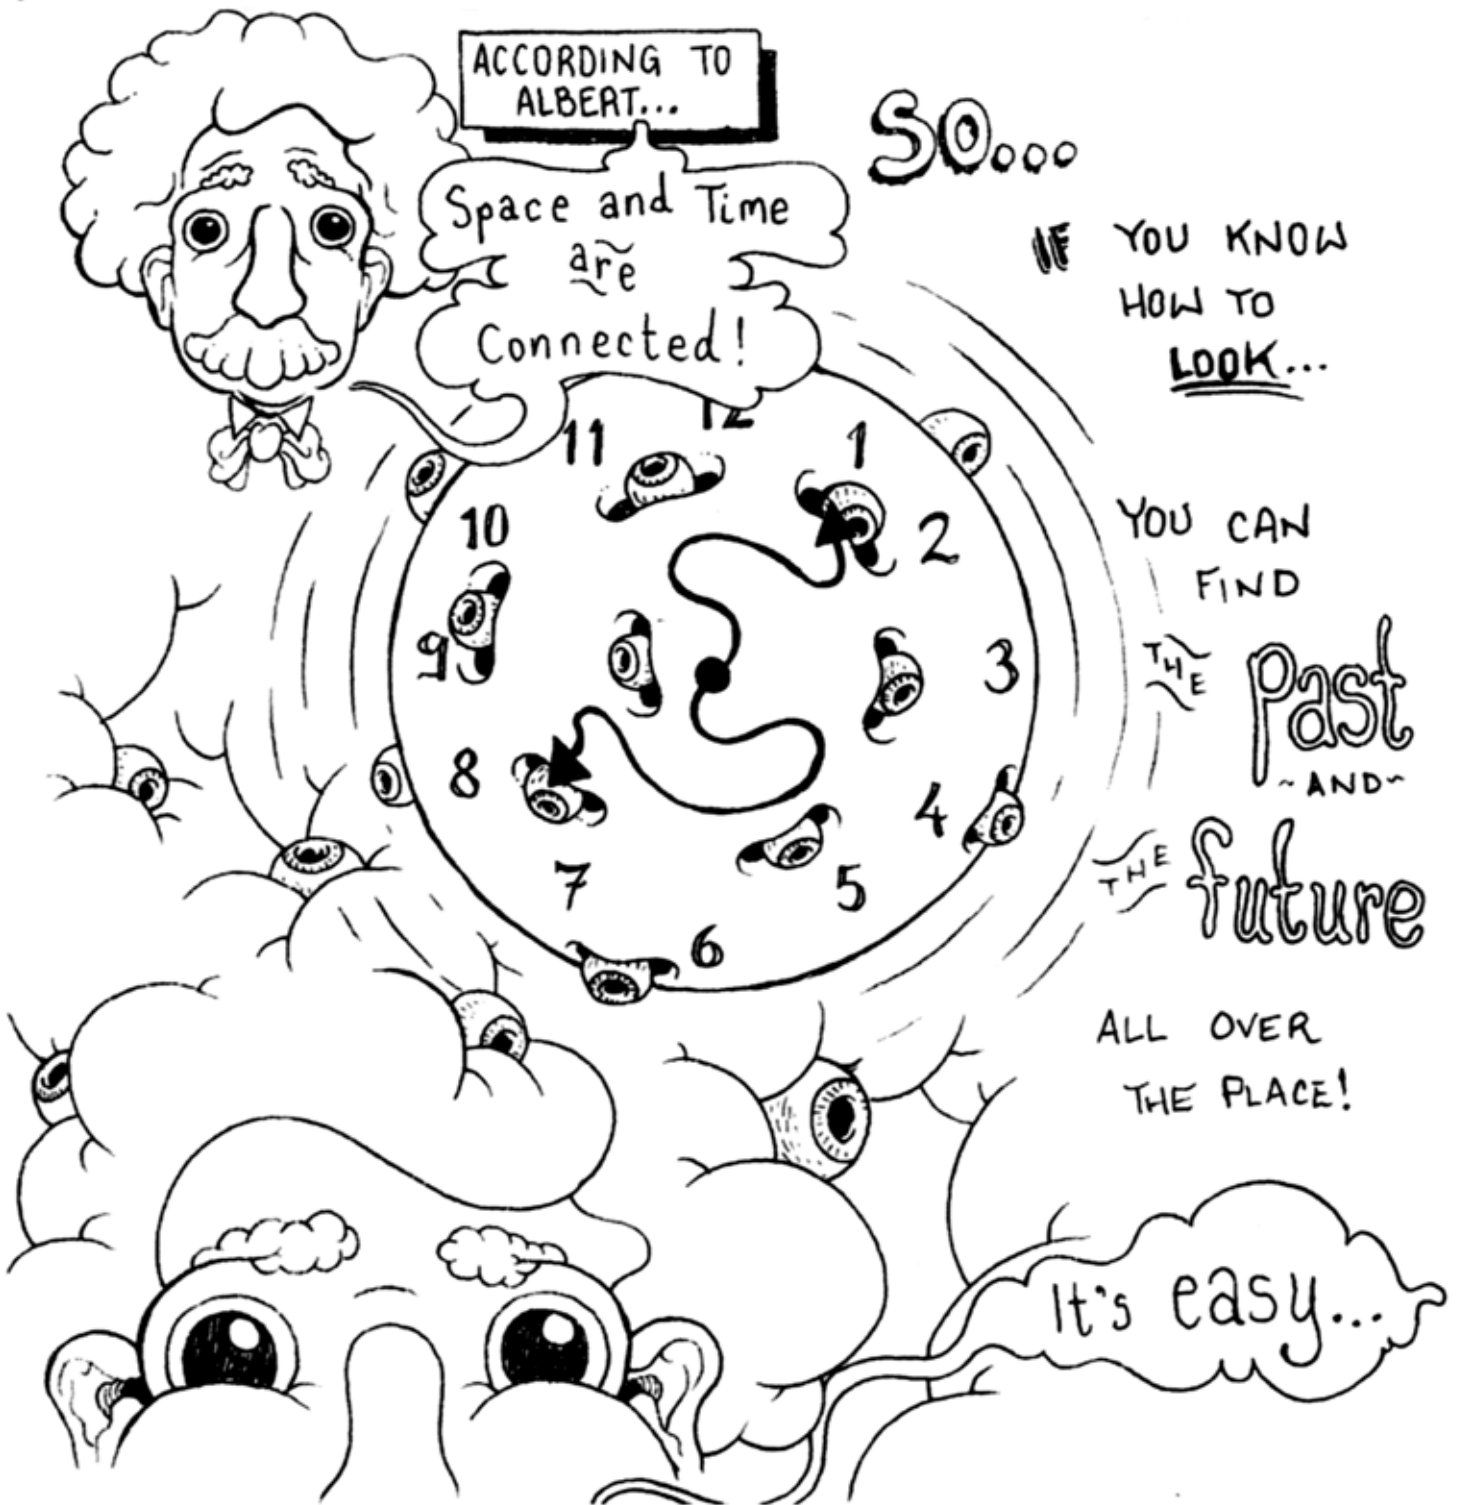 ACCORDING TO
ALBERT...
Space and Time
are
Connected!
SO...
IF YOU KNOW
HOW TO
LOOK...
YOU CAN
FIND
THE Past
~AND~
THE future
ALL OVER
THE PLACE!
It's easy...
12
1
2
3
4
5
6
7
8
9
10
11